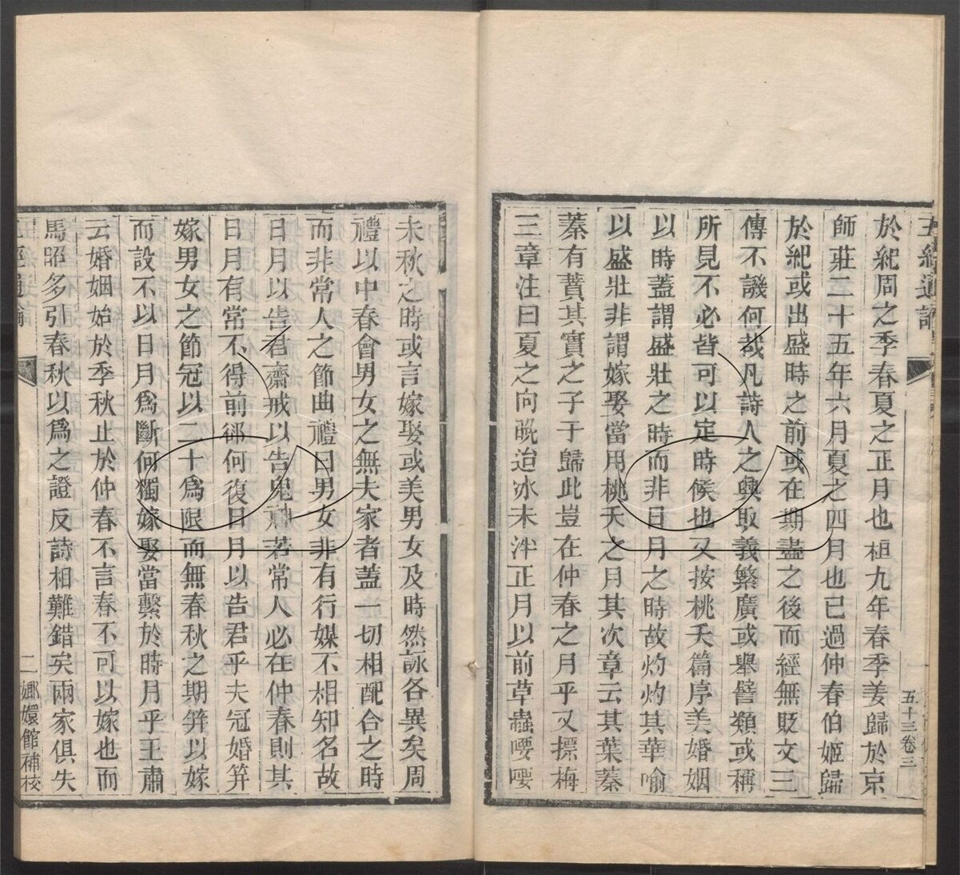 五經通論
五十三卷三
於紀周之季春夏之正月也桓九年春季姜歸於京
師莊二十五年六月夏之四月也已過仲春伯姬歸
於紀或出盛時之前或在期盡之後而經無貶文三
傳不譏何哉凡詩人之興取義繁廣或舉譬類或稱
所見不必皆可以定時候也又按桃夭篇序美婚姻
以時蓋謂盛壯之時而非日月之時故灼灼其華喻
以盛壯非謂嫁娶當用桃夭之月其次章云其葉蓁
蓁有蕡其實之子于歸此豈在仲春之月乎又摽梅
三章注曰夏之向晚迨冰未泮正月以前草蟲喓喓
未秋之時或言嫁娶或美男女及時然詠各異矣周
禮以中春會男女之無夫家者蓋一切相配合之時
而非常人之節曲禮曰男女非有行媒不相知名故
日月以告君齋戒以告鬼神若常人必在仲春則其
日月有常不得前卻何復日月以告君乎夫冠婚笄
嫁男女之節冠以二十爲限而無春秋之期笄以嫁
而設不以日月爲斷何獨嫁娶當繫於時月乎王肅
云婚姻始於季秋止於仲春不言春不可以嫁也而
馬昭多引春秋以爲之證反詩相難錯矣兩家俱失
二
嫏嬛館補校